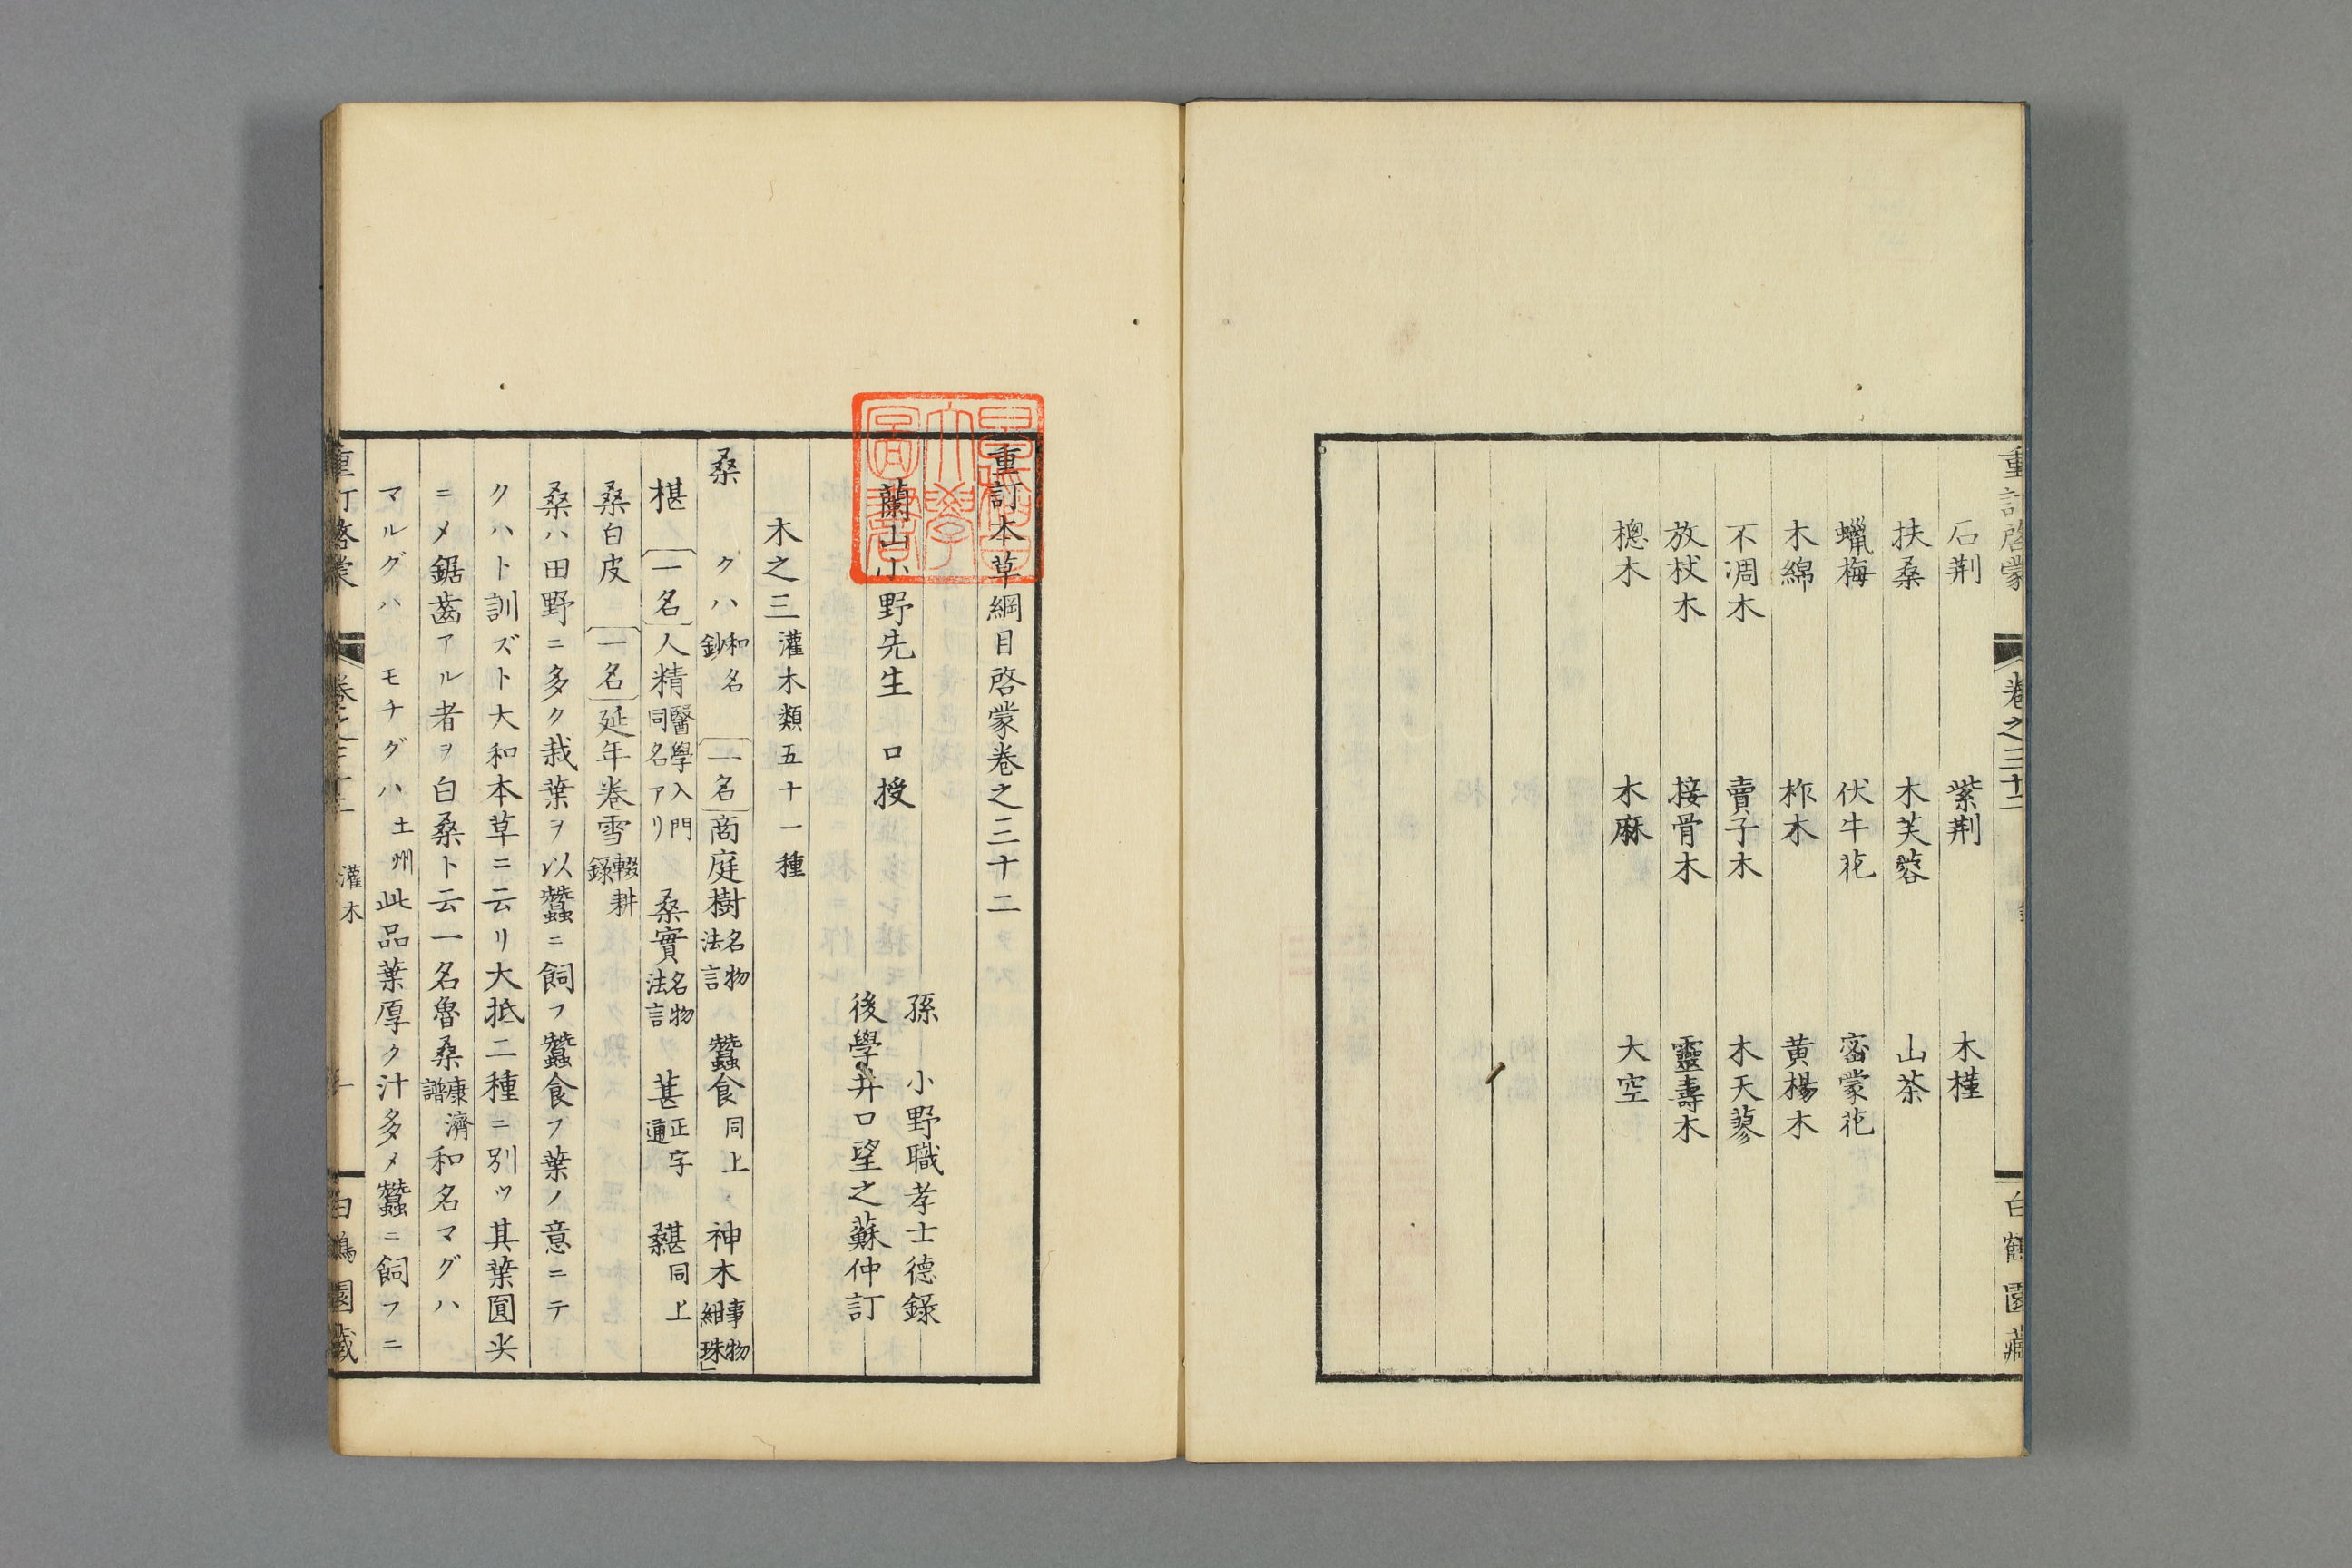 重訂啓蒙 卷之三十二 白鶴園藏
石荆 紫荆 木槿
扶桑 木芙蓉 山茶
蠟梅 伏牛花 密蒙花
木綿 柞木 黄楊木
不凋木 賣子木 木天蓼
放杖木 接骨木 靈壽木
楤木 木麻 大空
重訂本草綱目啓蒙卷之三十二
蘭山小野先生 口授
孫 小野職孝士德錄
後學井口望之蘇仲訂
木之三 灌木類五十一種
桑 クハ 和名鈔 一名 商庭樹 名物法言 蠶食 同上 神木 事物紺珠
椹 一名 人精 醫學入門同名アリ 桑實 名物法言 葚 正字通 䵖 同上
桑白皮 一名 延年卷雪 輟耕錄
桑ハ田野ニ多ク栽葉ヲ以蠶ニ飼フ蠶食フ葉ノ意ニテ
クハト訓ズト大和本草ニ云リ大抵二種ニ別ツ其葉圓尖
ニメ鋸齒アル者ヲ白桑ト云一名魯桑 康濟譜 和名マグハ
マルグハ モチグハ 土州 此品葉厚ク汁多メ蠶ニ飼フニ
重訂啓蒙 卷之三十二 灌木 一 白鶴園藏